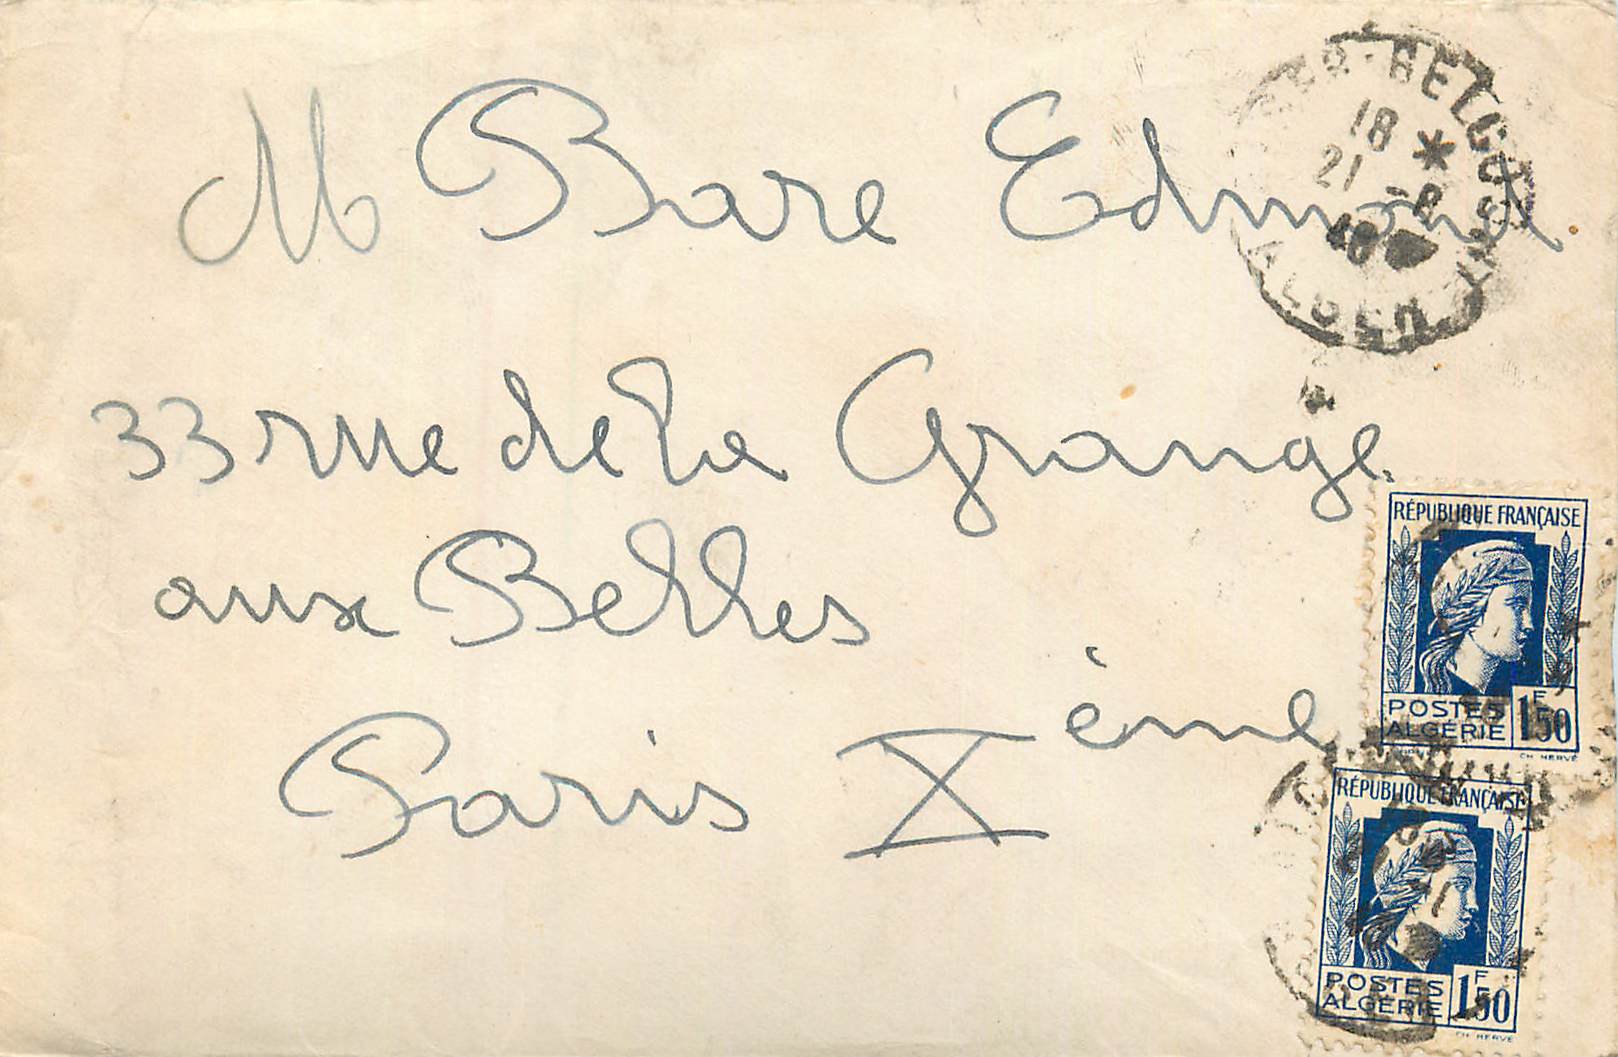 M Bare Edmond.
33 rue de la Grange
aux Belles
Paris X ème
BELCOURT
18 *
21 -
ALGER
RÉPUBLIQUE FRANÇAISE
POSTES
ALGÉRIE
1F50
CH HERVÉ
RÉPUBLIQUE FRANÇAISE
POSTES
ALGÉRIE
1F50
CH HERVÉ